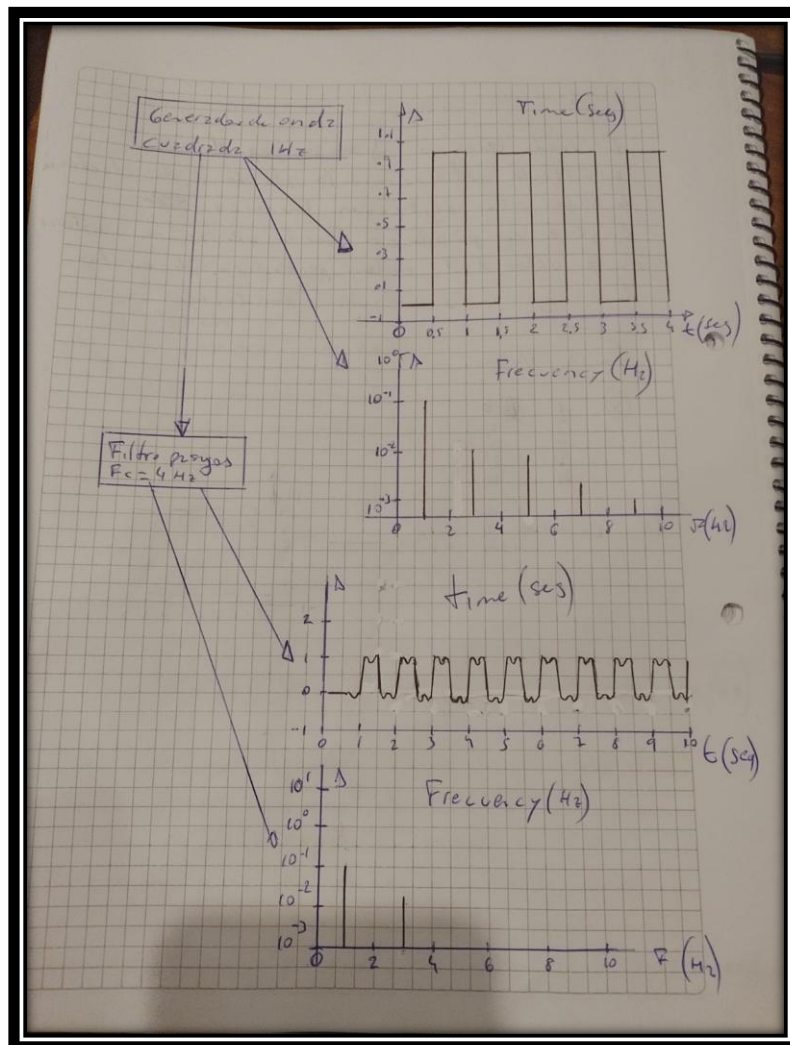 Generador de onda
Cuadrada 1Hz
Time (seg)
A
1.1
.9
.7
.5
.3
.1
-.1
0 0,5 1 1,5 2 2,5 3 3,5 4 t(seg)
Frecuency (Hz)
A
10⁰
10⁻¹
10⁻²
10⁻³
0 2 4 6 8 10 F(Hz)
Filtro
Fc=4 Hz
time (seg)
A
2
1
0
-1
0 1 2 3 4 5 6 7 8 9 10 t(seg)
Frecuency (Hz)
A
10¹
10⁰
10⁻¹
10⁻²
10⁻³
0 2 4 6 8 10 F (Hz)